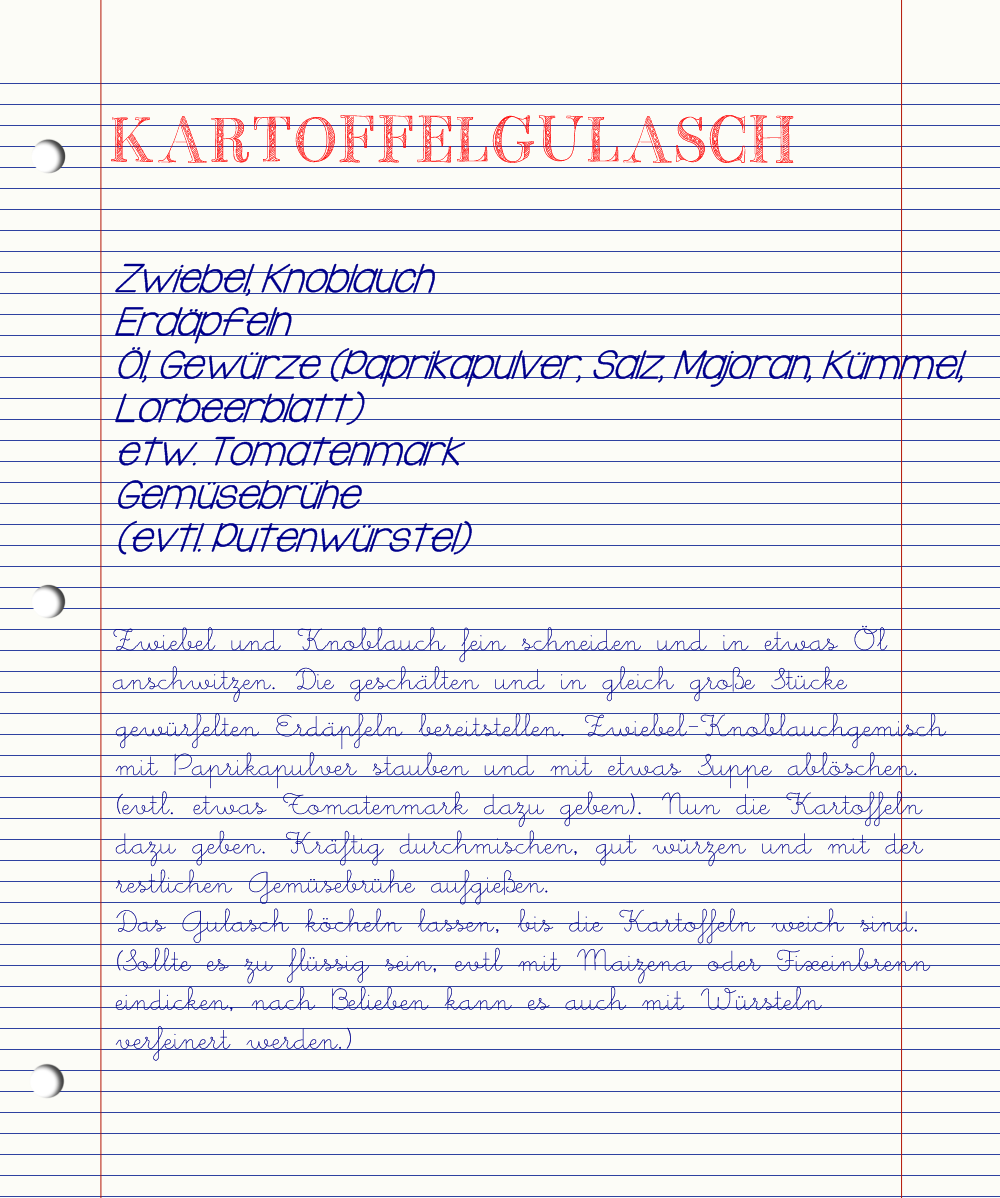 KARTOFFELGULASCH
Zwiebel, Knoblauch
Erdäpfeln
Öl, Gewürze (Paprikapulver, Salz, Majoran, Kümmel,
Lorbeerblatt)
etw. Tomatenmark
Gemüsebrühe
(evtl. Putenwürstel)
Zwiebel und Knoblauch fein schneiden und in etwas Öl
anschwitzen. Die geschälten und in gleich große Stücke
gewürfelten Erdäpfeln bereitstellen. Zwiebel-Knoblauchgemisch
mit Paprikapulver stauben und mit etwas Suppe ablöschen.
(evtl. etwas Tomatenmark dazu geben). Nun die Kartoffeln
dazu geben. Kräftig durchmischen, gut würzen und mit der
restlichen Gemüsebrühe aufgießen.
Das Gulasch köcheln lassen, bis die Kartoffeln weich sind.
(Sollte es zu flüssig sein, evtl mit Maizena oder Fixeinbrenn
eindicken, nach Belieben kann es auch mit Würsteln
verfeinert werden.)